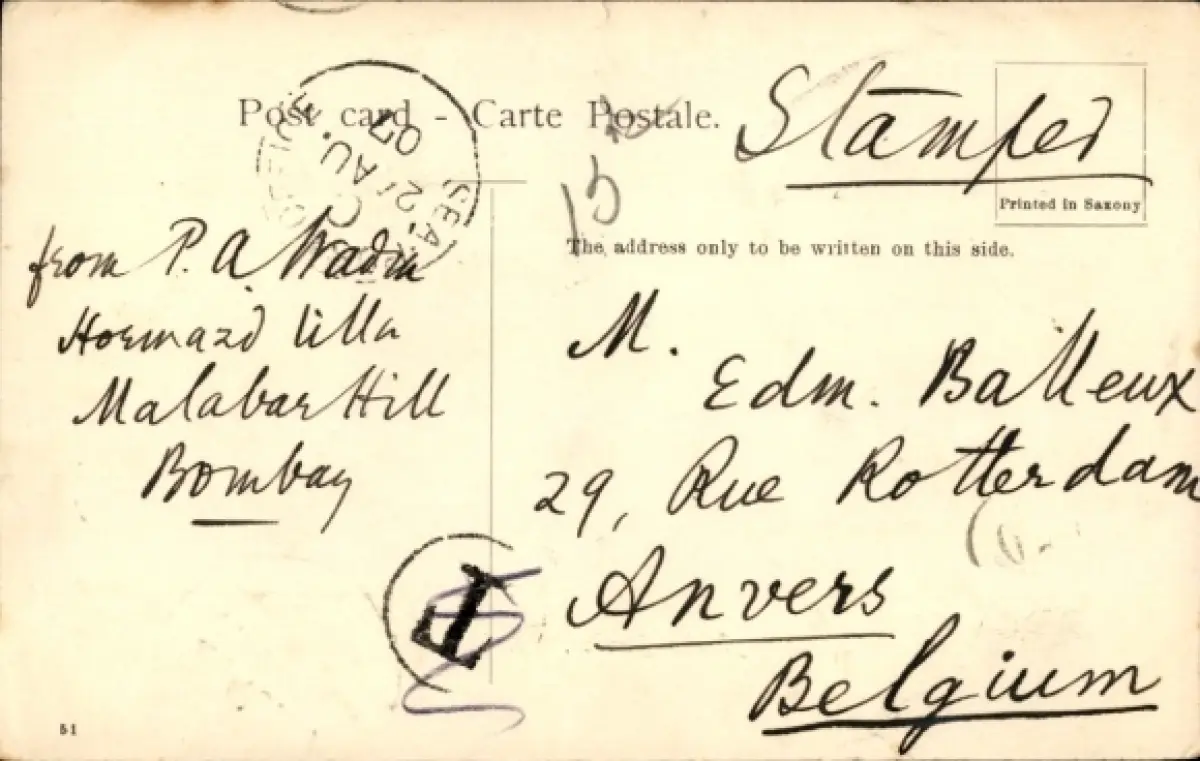 Post card - Carte Postale.
Stamped
Printed in Saxony
The address only to be written on this side.
SEA
2 AU
07
from P. A. Wadia
Hormazd Villa
Malabar Hill
Bombay
M.
Edm. Bailleux
29, Rue Rotterdam
Anvers
Belgium
T
51